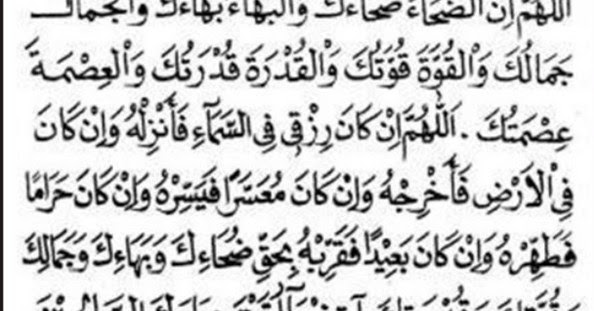 اَللّٰهُمَّ اِنَّ الضُّحَاءَ ضُحَاءُكَ وَالْبَهَاءَ بَهَاءُكَ وَالْجَمَالَ
جَمَالُكَ وَالْقُوَّةَ قُوَّتُكَ وَالْقُدْرَةَ قُدْرَتُكَ وَالْعِصْمَةَ
عِصْمَتُكَ . اَللّٰهُمَّ اِنْ كَانَ رِزْقِى فِى السَّمَآءِ فَأَنْزِلْهُ وَاِنْ كَانَ
فِى الْاَرْضِ فَأَخْرِجْهُ وَاِنْ كَانَ مُعَسَّرًا فَيَسِّرْهُ وَاِنْ كَانَ حَرَامًا
فَطَهِّرْهُ وَاِنْ كَانَ بَعِيْدًا فَقَرِّبْهُ بِحَقِّ ضُحَاءِكَ وَبَهَاءِكَ وَجَمَالِكَ